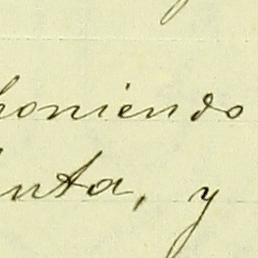 poniendo
nta, y